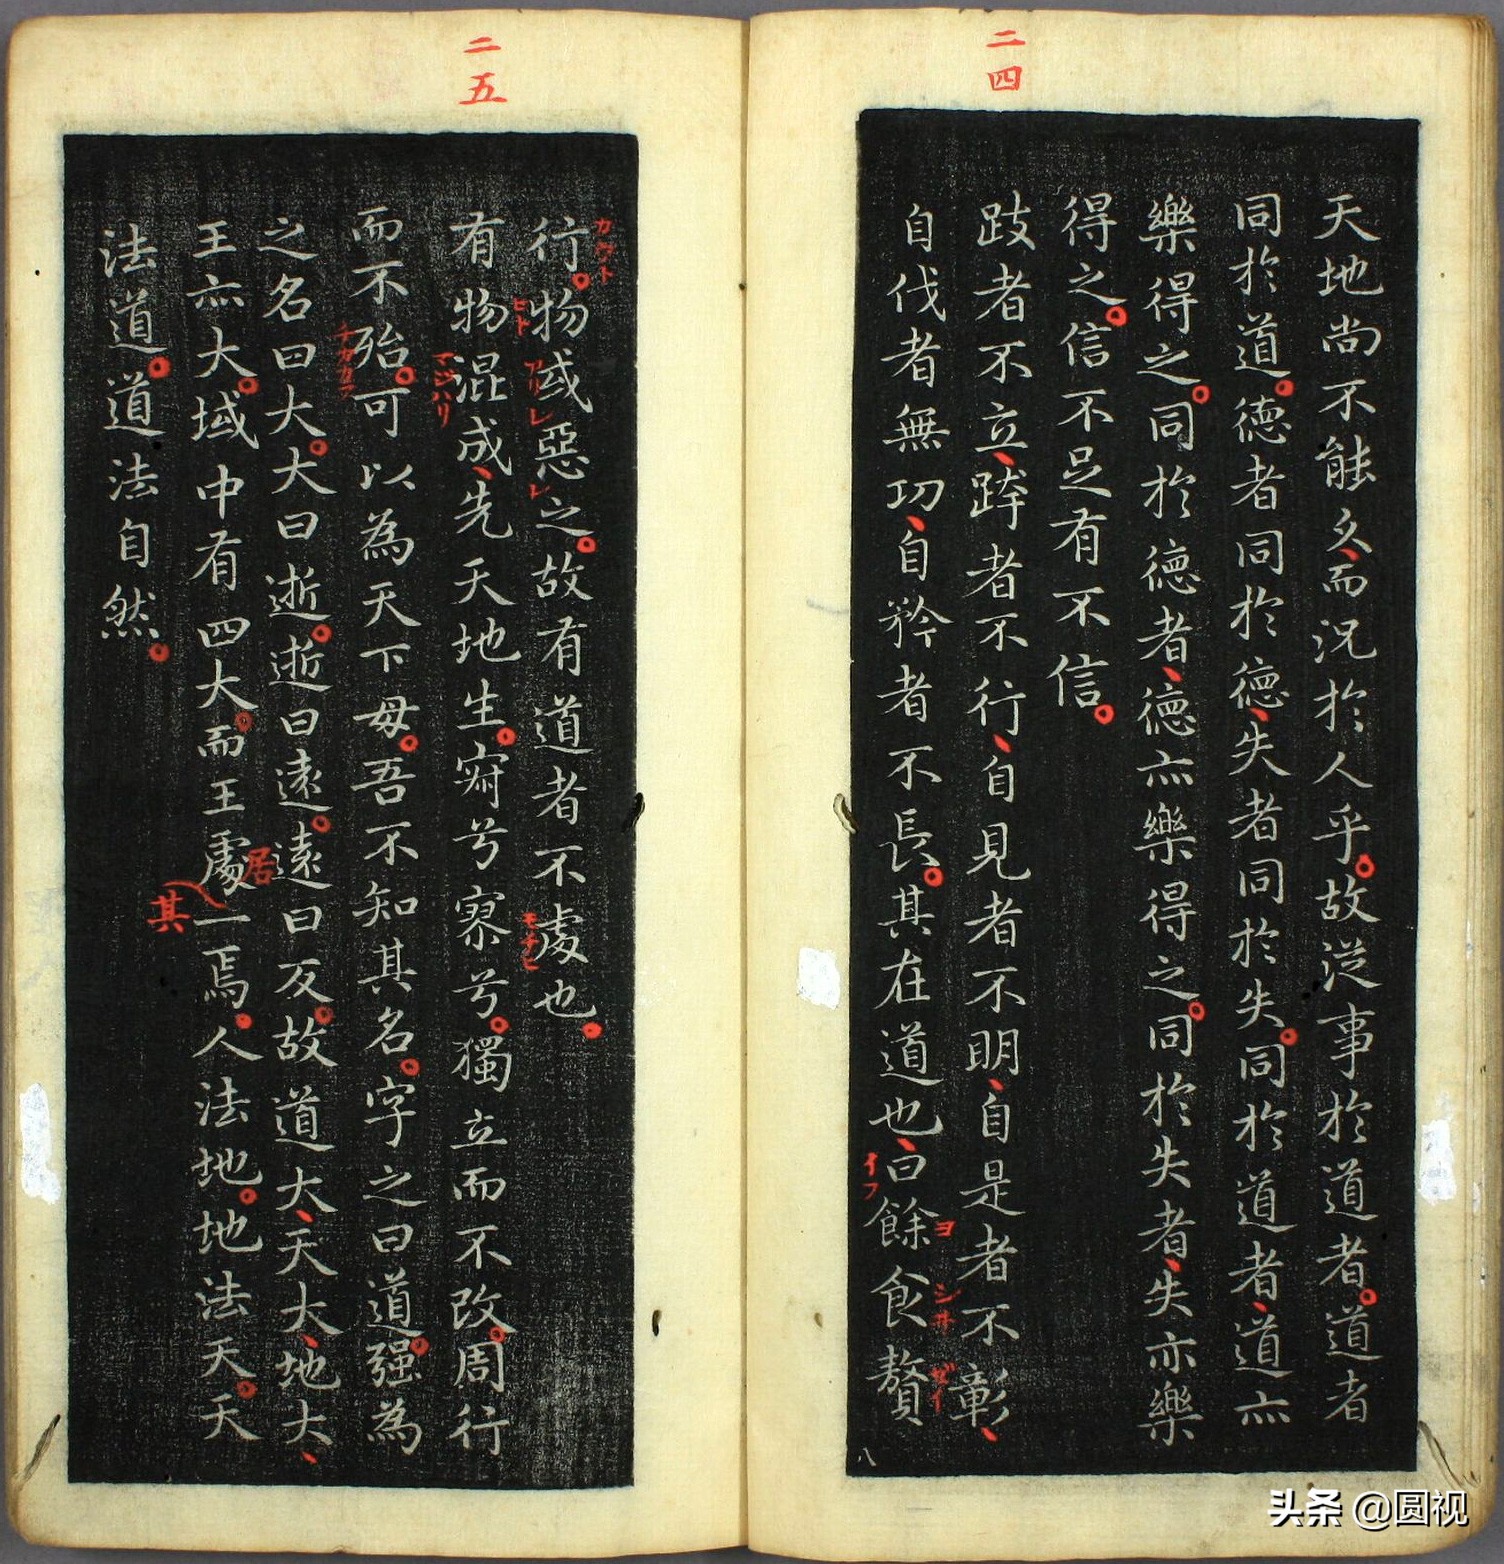 二四
天地尚不能久、而況於人乎。故從事於道者。道者
同於道。德者同於德、失者同於失。同於道者、道亦
樂得之。同於德者、德亦樂得之。同於失者、失亦樂
得之。信不足有不信。
跂者不立、跨者不行、自見者不明、自是者不彰、
自伐者無功、自矜者不長。其在道也、曰餘食贅
イフ
ヨ
シヰ
ゼイ
八
二五
行。物或惡之。故有道者不處也。
カウト
アリ
レ
レ
有物混成、先天地生。寂兮寥兮。獨立而不改。周行
マジハリ
而不殆。可以為天下母。吾不知其名。字之曰道。强為
チカカラ
之名曰大。大曰逝。逝曰遠。遠曰反。故道大、天大、地大、
王亦大。域中有四大。而王處一焉。人法地。地法天。天
居
其
法道。道法自然。
头条 @圆视